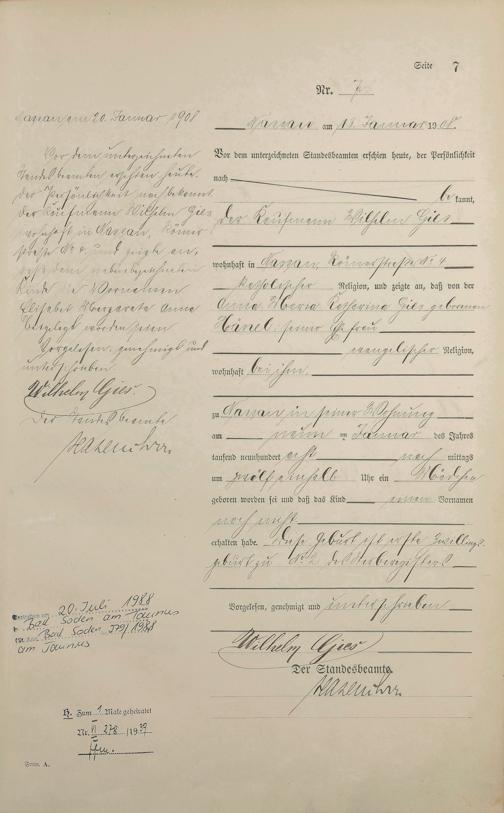 Seite 7
Nr. 7
Nassau am 13. Januar 1908.
Vor dem unterzeichneten Standesbeamten erschien heute, der Persönlichkeit
nach
be kannt,
der Kaufmann Wilhelm Gies
wohnhaft in Nassau, Römerstraße No 4
katholischer Religion, und zeigte an, daß von der
Anna Maria Katharina Gies geborenen
seiner Ehefrau
evangelischer Religion,
wohnhaft bei ihm
zu Nassau in seiner Wohnung
am neun ten Januar des Jahres
tausend neunhundert acht nach mittags
um zwölf einhalb Uhr ein Mädchen
geboren worden sei und daß das Kind einen Vornamen
noch nicht
erhalten habe. Diese Geburt ist erste Zwillings
geburt zu No 2 des Sterberegisters
Vorgelesen, genehmigt und unterschrieben
Wilhelm Gies
Der Standesbeamte.
Nassau, am 20. Januar 1908
Vor dem unterzeichneten
Standesbeamten erschien heute,
der Persönlichkeit nach bekannt,
der Kaufmann Wilhelm Gies
wohnhaft in Nassau, Römer
straße No 4 und zeigte an,
daß dem nebenbezeichneten
Kinde die Vornamen
Elisabet Margareta Anna
beigelegt worden seien
Vorgelesen, genehmigt und
unterschrieben
Wilhelm Gies.
Der Standesbeamte
20. Juli 1988
Bad Soden am Taunus
Bad Soden 379/1988
am Taunus
H. Zum 1. Male geheiratet
Nr. VI 278 /1939
Ffm.
Form. A.